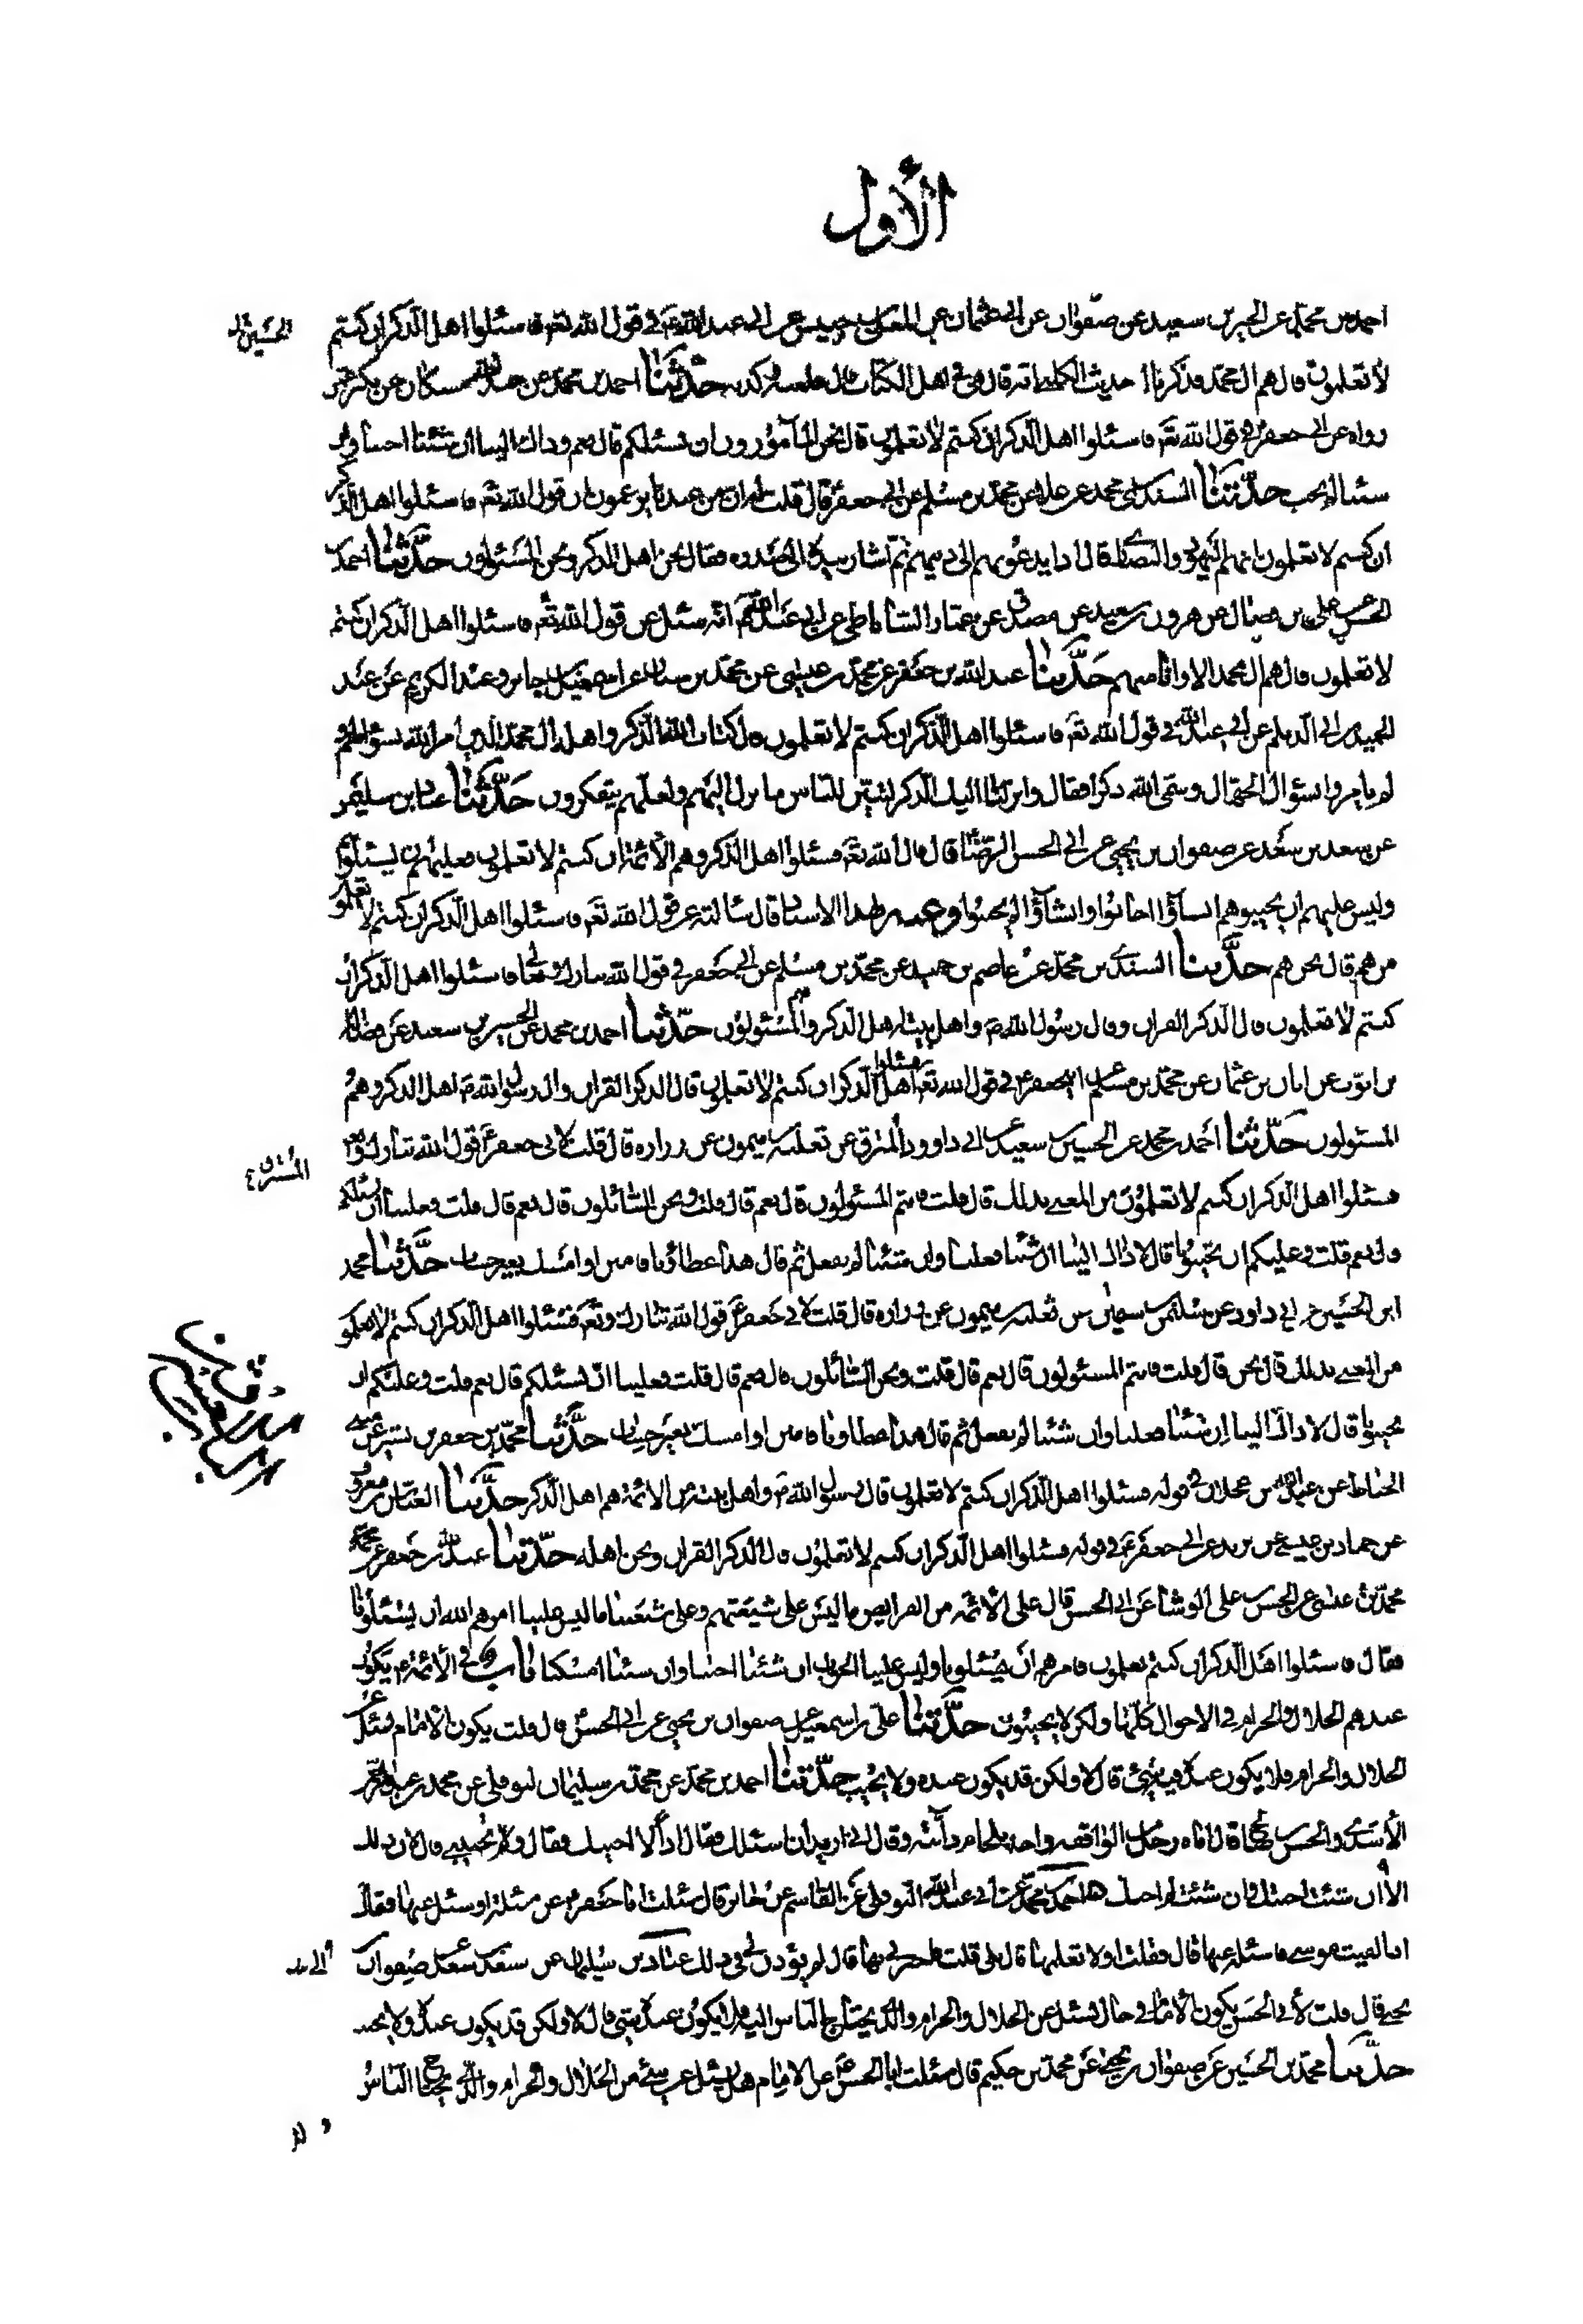 الأول
احمد بن محمد عن الحسين بن سعيد عن صفوان عن ابى عثمان عن المعلى بن خنيس عن ابى عبد الله ع فى قول الله تعه فاسئلوا اهل الذكر ان كنتم
لا تعلمون قال هم ال محمد فذكرنا حديث الكلبى انه قال هى فى اهل الكتاب قال فلعنه وكذبه حدثنا احمد بن محمد عن عبد الله بن مسكان عن بكير عمن
رواه عن ابى جعفر ع فى قول الله تعه فاسئلوا اهل الذكر ان كنتم لا تعلمون قال نحن المأمورون ان تسئلكم قال نعم وذاك الينا ان شئنا اجبنا وان
شئنا لم نجب حدثنا السندى بن محمد عن علا عن محمد بن مسلم عن ابى جعفر قال قلت له ان من عندنا يزعمون ان قول الله تعه فاسئلوا اهل الذكر
ان كنتم لا تعلمون انهم اليهود والنصارى قال اذا يدعونهم الى دينهم ثم اشار بيده الى صدره فقال نحن اهل الذكر ونحن المسئولون حدثنا احمد بن
الحسن عن على بن فضال عن هرون بن سعيد عن مصدق عن عمار الساباطى عن ابى عبد الله ع انه سئل عن قول الله تعه فاسئلوا اهل الذكر ان كنتم
لا تعلمون قال هم ال محمد الا وانا منهم حدثنا عبد الله بن جعفر عن محمد بن عيسى عن محمد بن سنان عن اسمعيل بن جابر وعبد الكريم عن عبد
الحميد بن ابى الديلم عن ابى عبد الله فى قول الله تعه فاسئلوا اهل الذكر ان كنتم لا تعلمون قال كتاب الله الذكر واهله ال محمد الذين امر الله بسؤالهم ولم
لم يامروا بسؤال الجهال وسمى الله ذكرا فقال وانزلنا اليك الذكر لتبين للناس ما نزل اليهم ولعلهم يتفكرون حدثنا عباد بن سليمن
عن سعد بن سعد عن صفوان بن يحيى عن ابى الحسن الرضا قال قال الله تعه فسئلوا اهل الذكر وهم الائمة ان كنتم لا تعلمون فعليهم ان يسئلوا
وليس عليهم ان يجيبوهم ان شاؤا اجابوا وان شاؤا لم يجيبوا وعنه بهذا الاسناد قال سالته عن قول الله تعه فاسئلوا اهل الذكر ان كنتم لا تعلمون
من هم قال نحن هم حدثنا السندى بن محمد عن عاصم بن حميد عن محمد بن مسلم عن ابى جعفر فى قول الله تبارك وتعالى فاسئلوا اهل الذكر ان
كنتم لا تعلمون قال الذكر القران وقال رسول الله ص واهل بيته اهل الذكر وهم المسئولون حدثنا احمد بن محمد عن الحسين بن سعيد عن فضالة
بن ايوب عن ابان بن عثمان عن محمد بن مسلم عن ابى جعفر ع فى قول الله تعه فسئلوا اهل الذكر ان كنتم لا تعلمون قال الذكر القران وال رسول الله ص اهل الذكر وهم
المسئولون حدثنا احمد بن محمد عن الحسين بن سعيد عن ابى داوود المنرق عن ثعلبة بن ميمون عن زراره قال قلت لابى جعفر ع قول الله تبارك وتعه
فسئلوا اهل الذكر ان كنتم لا تعلمون من المعنى بذلك قال قلت فانتم المسئولون قال نعم قال قلت ونحن السائلون قال نعم قال قلت فعلينا ان نسئلكم
قال نعم قلت وعليكم ان تجيبونا قال لا ذاك الينا ان شئنا فعلنا وان شئنا لم نفعل ثم قال هذا عطاؤنا فامنن او امسك بغير حساب حدثنا محمد
ابن الحسين عن ابى داود عن سليمن بن سفيان عن ثعلبة بن ميمون عن زراره قال قلت لابى جعفر ع قول الله تبارك وتعه فسئلوا اهل الذكر ان كنتم لا تعلمون
من المعنى بذلك قال نحن قال قلت فانتم المسئولون قال نعم قال قلت ونحن السائلون قال نعم قال قلت فعلينا ان نسئلكم قال نعم قلت وعليكم ان
تجيبونا قال لا ذاك الينا ان شئنا فعلنا وان شئنا لم نفعل ثم قال هذا عطاونا فامنن او امسك بغير حساب حدثنا محمد بن جعفر بن بشير عن مثنى
الحناط عن عبد الله بن عجلان فى قوله فسئلوا اهل الذكر ان كنتم لا تعلمون قال رسول الله ص واهل بيته من الائمة هم اهل الذكر حدثنا العباس بن معروف
عن حماد بن عيسى عن بريد عن ابى جعفر ع فى قوله فسئلوا اهل الذكر ان كنتم لا تعلمون قال الذكر القران ونحن اهله حدثنا عبد الله بن جعفر عن محمد
محمد بن عيسى عن الحسن بن على الوشا عن ابى الحسن قال على الائمه من الفرايض ما ليس على شيعتهم وعلى شيعتنا ما ليس علينا امرهم الله ان يسئلونا
فقال فاسئلوا اهل الذكر ان كنتم تعلمون فامرهم ان يسئلونا وليس علينا الجواب ان شئنا اجبنا وان شئنا امسكنا باب فى الائمة ع يكون
عندهم الحلال والحرام فى الاحوال كلها ولكن لا يجيبون حدثنا على بن اسمعيل عن صفوان بن يحيى عن ابى الحسن قال قلت يكون الامام يسئل عن
الحلال والحرام فلا يكون عنده فيه شئ قال لا ولكن قد يكون عنده ولا يجيب حدثنا احمد بن محمد عن محمد بن سليمان النوفلى عن محمد بن عبد الرحمن
الأسدى والحسن بن صالح قال اتاه رجل من الواقفه واخذ بلجام دابته وقال انى اريد ان اسئلك فقال اذا لا اجيبك فقال ولم لا تجيبنى قال لان ذلك
الى ان شئت اجبتك وان شئت لم اجبك احمد بن محمد عن ابى عبد الله النوفلى عن القاسم عن جابر قال سئلت ابا جعفر ع عن مسئلة او سئل عنها فقال
اذا لقيت موسى فاسئله عنها قال فقلت اولا تعلمها قال بلى قلت فاخبرنى بها قال لم يؤذن لى فى ذلك عباد بن سليمان عن سعد بن سعد عن صفوان بن
يحيى قال قلت لأبى الحسن يكون الامام فى حال يسئل عن الحلال والحرام والذى يحتاج الناس اليه فلا يكون عنده شئ قال لا ولكن قد يكون عنده ولا يجيب
حدثنا محمد بن الحسين عن صفوان بن يحيى عن محمد بن حكيم قال سئلت ابا الحسن ع عن الامام هل يسئل عن شئ من الحلال والحرام والذى يحتاج الناس